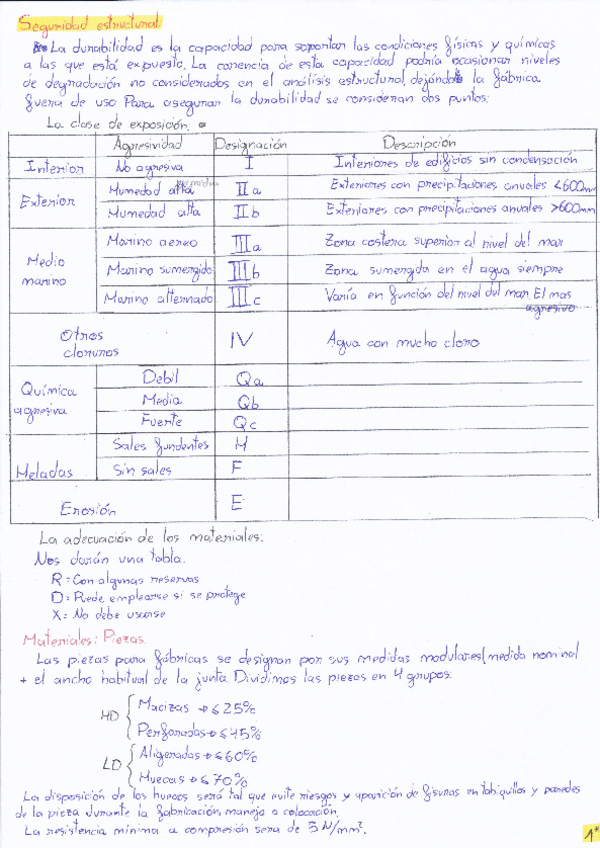 Seguridad estructural.
La durabilidad es la capacidad para soportar las condiciones físicas y químicas
a las que está expuesto. La carencia de esta capacidad podría ocasionar niveles
de degradación no considerados en el análisis estructural, dejándo la fábrica
fuera de uso Para asegurar la durabilidad se consideran dos puntos:
La clase de exposición.
Agresividad Designación Descripción
Interior No agresiva I Interiores de edificios sin condensación
Exterior Humedad alta media IIa Exteriores con precipitaciones anuales <600mm
Humedad alta IIb Exteriores con precipitaciones anuales >600mm
Medio marino Marino aereo IIIa Zona costera superior al nivel del mar
Marino sumergido IIIb Zona sumergida en el agua siempre
Marino alternado IIIc Varía en función del nivel del mar El mas agresivo
Otros cloruros IV Agua con mucho cloro
Química agresiva Debil Qa
Media Qb
Fuerte Qc
Heladas Sales fundentes H
Sin sales F
Erosión E
La adecuación de los materiales:
Nos darán una tabla.
R = Con algunas reservas
D = Puede emplearse si se protege
X = No debe usarse
Materiales: Piezas.
Las piezas para fábricas se designan por sus medidas modulares (medida nominal
+ el ancho habitual de la junta Dividimos las piezas en 4 grupos:
HD { Macizas → ≤25%
Perforadas → ≤45%
LD { Aligeradas → ≤60%
Huecas → ≤70%
La disposición de los huecos será tal que evite riesgos y aparición de fisuras en tabiquillos y paredes
de la pieza durante la fabricación, manejo o colocación.
La resistencia mínima a compresión sera de 5 N/mm².
1*